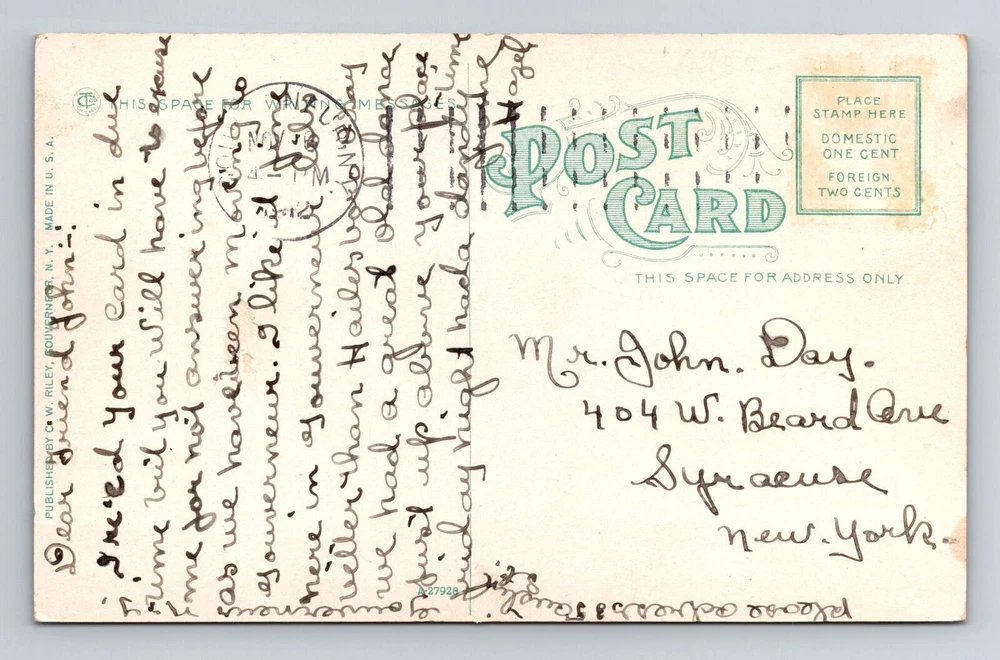 THIS SPACE FOR WRITING MESSAGES
PUBLISHED BY C. W. RILEY, GOUVERNEUR, N. Y. MADE IN U. S. A.
Dear friend John:-
I rec'ed your card in due
time but you will have to excuse
me for not answering before
as we have been moving to
Gouverneur. I like it fine
here in Gouverneur
better than Hailesboro
we had a great old dance
just up above your place
friday night had a dandy time
Hazel
please address
Gouverneur
A-27928
POST
CARD
PLACE
STAMP HERE
DOMESTIC
ONE CENT
FOREIGN,
TWO CENTS
THIS SPACE FOR ADDRESS ONLY
Mr. John. Day.
404 W. Beard Ave
Syracuse
New. York.